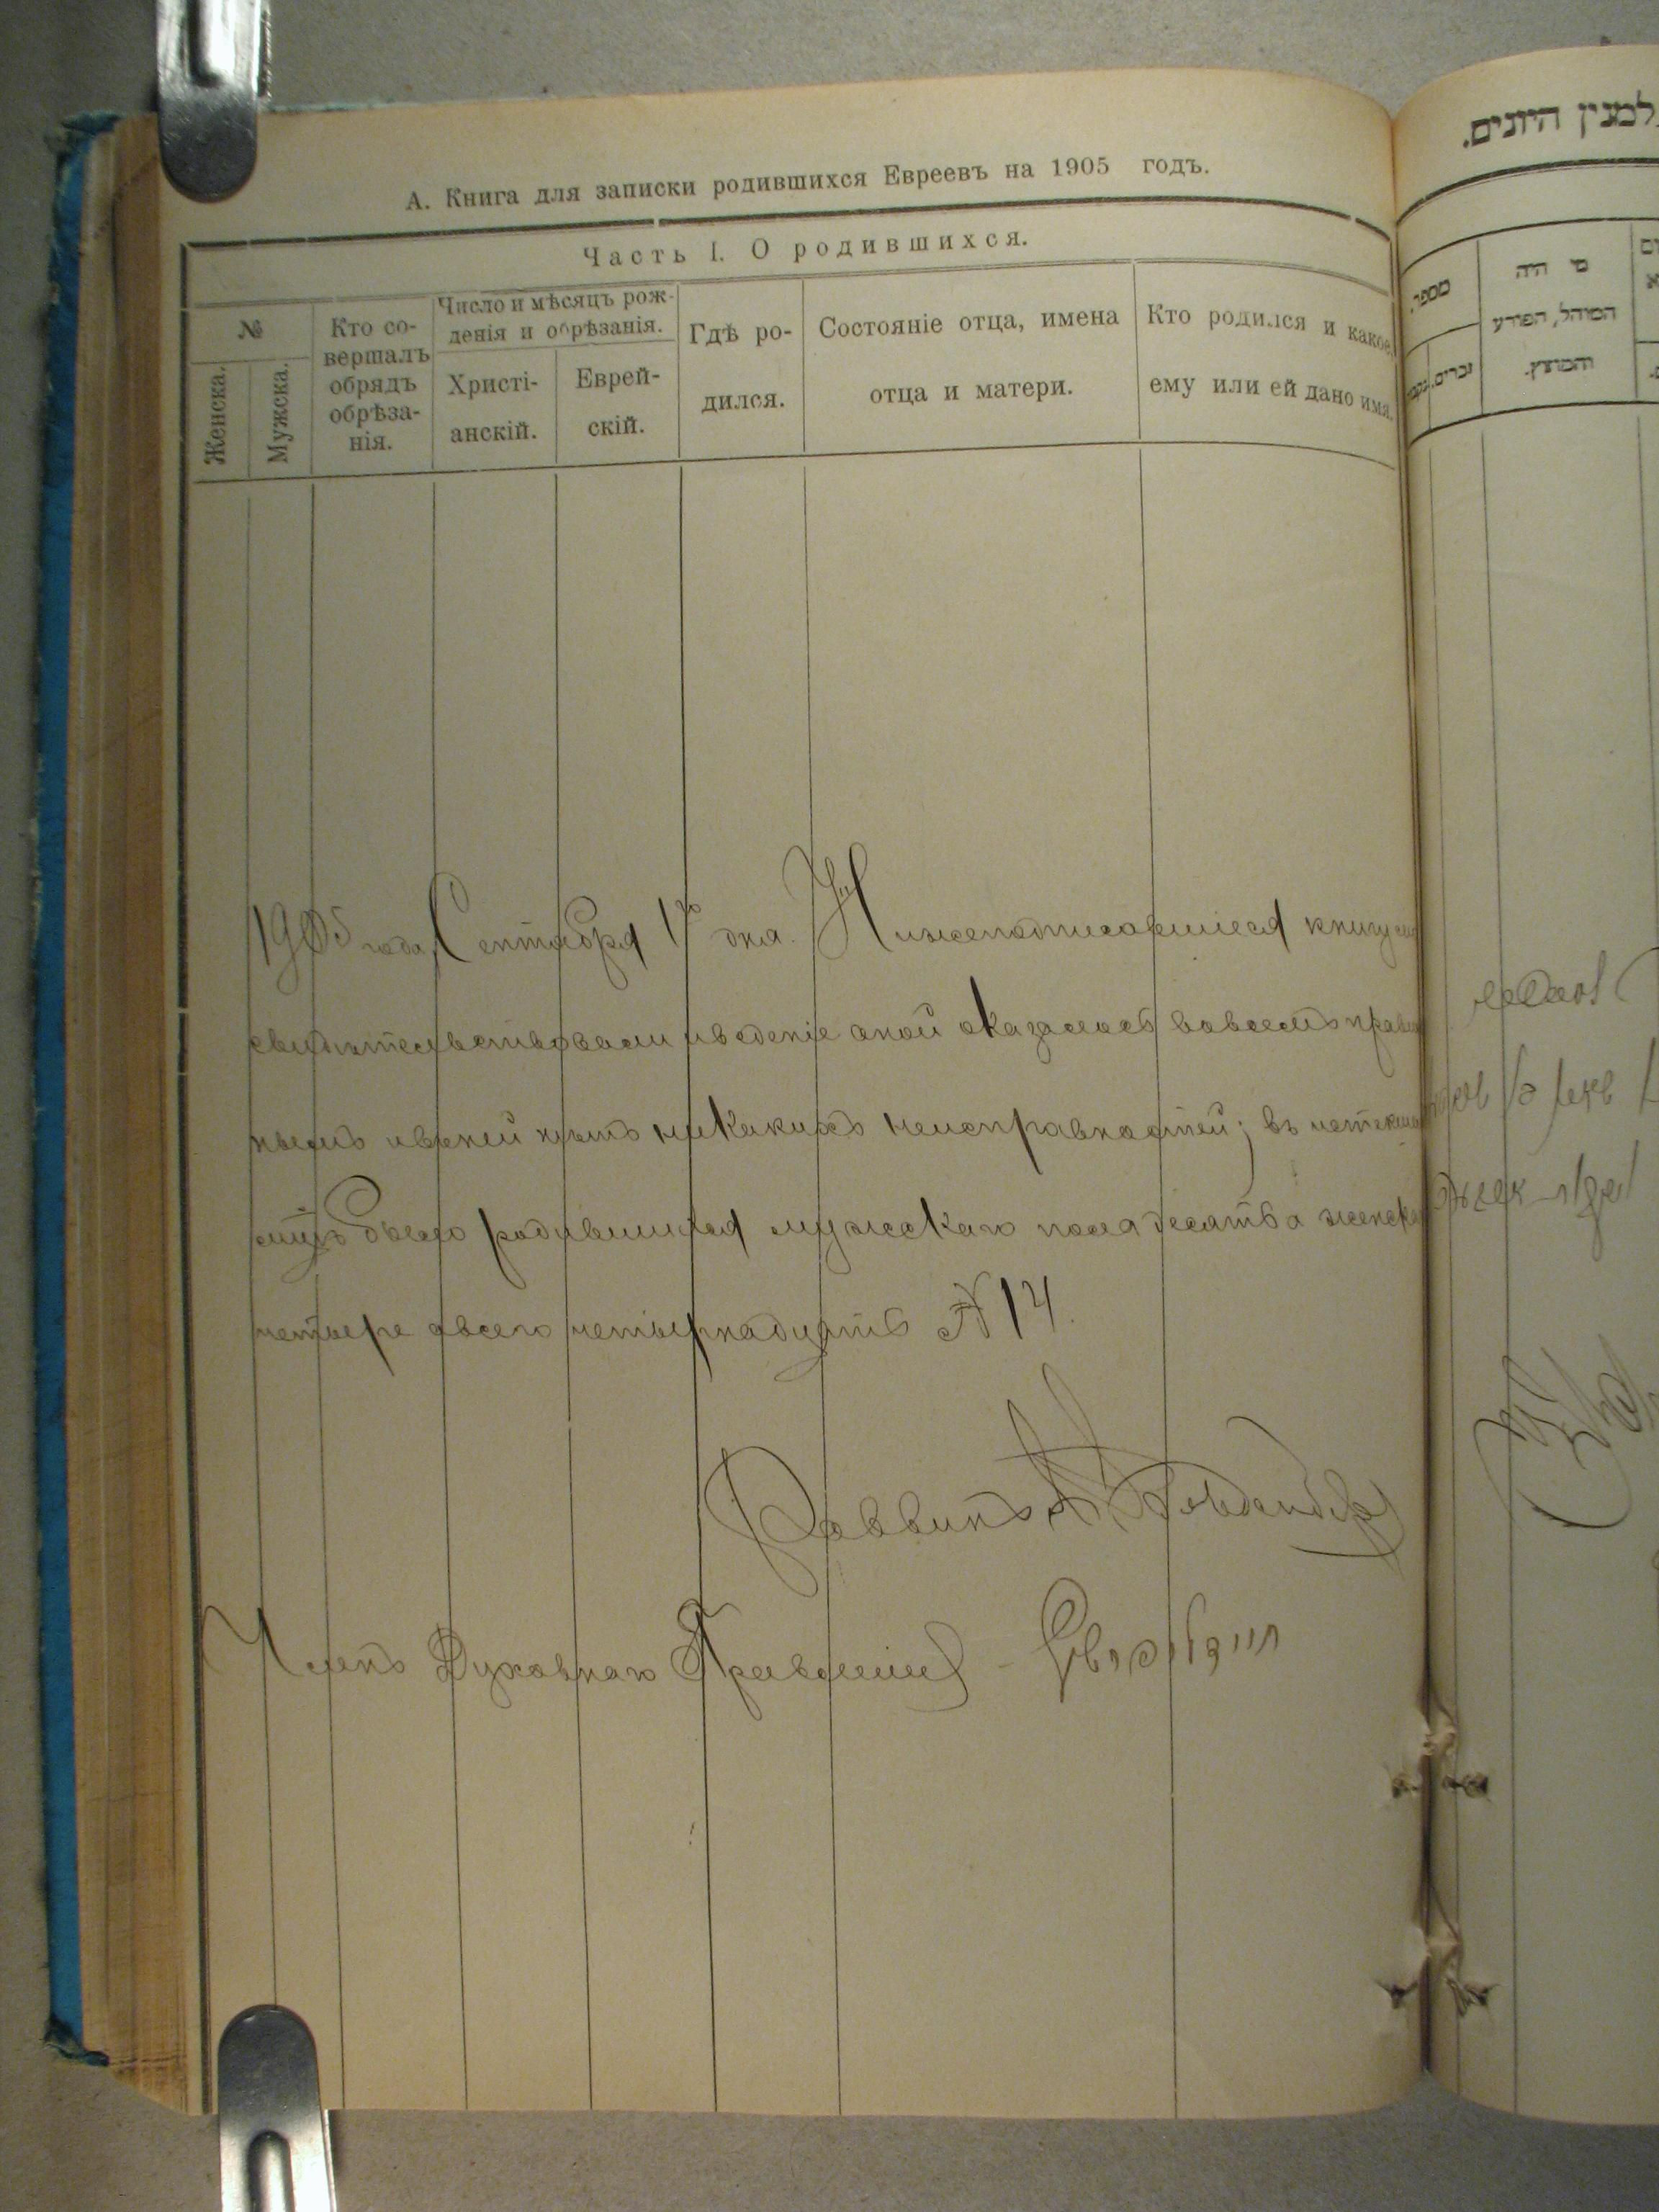 А. Книга для записки родившихся Евреевъ на 1905 годъ.
Часть I. О родившихся.
№
Женска.
Мужска.
Кто со-
вершалъ
обрядъ
обрѣза-
нія.
Число и мѣсяцъ рож-
денія и обрѣзанія.
Христі-
анскій.
Еврей-
скій.
Гдѣ ро-
дился.
Состояніе отца, имена
отца и матери.
Кто родился и какое
ему или ей дано имя.
1905 года Сентября 1го дня. Нижеподписавшіеся книгу сію
свидѣтельствовали и веденіе оной оказалось во всемъ правиль
нымъ и въ ней нѣтъ никакихъ неисправностей; въ истекшемъ
было родившихся мужскаго пола десять а женскаго
четыре а всего четырнадцать № 14.
Раввинъ
Членъ Духовнаго Правленія -
למנין היונים.
מספר
זכרים.
מי היה
המוהל, הפורע
והמוצץ.